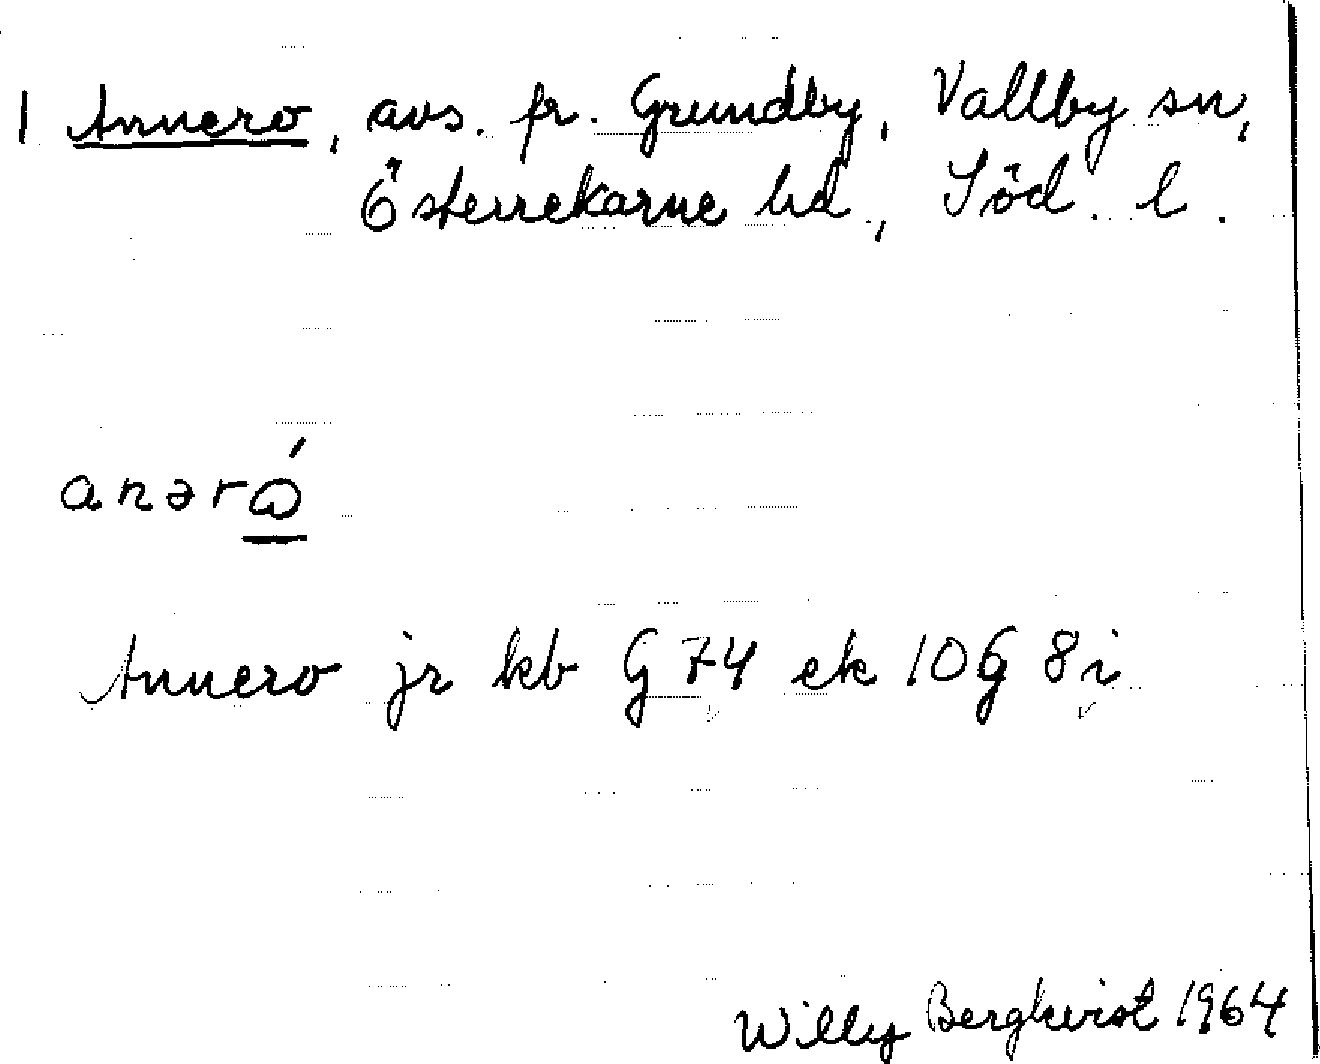 1 Annero, avs. fr. Grundby, Vallby sn,
Österrekarne hd, Söd. l.
anərώ
Annero jr kb G 74 ek 10G 8i
Willy Bergkvist 1964